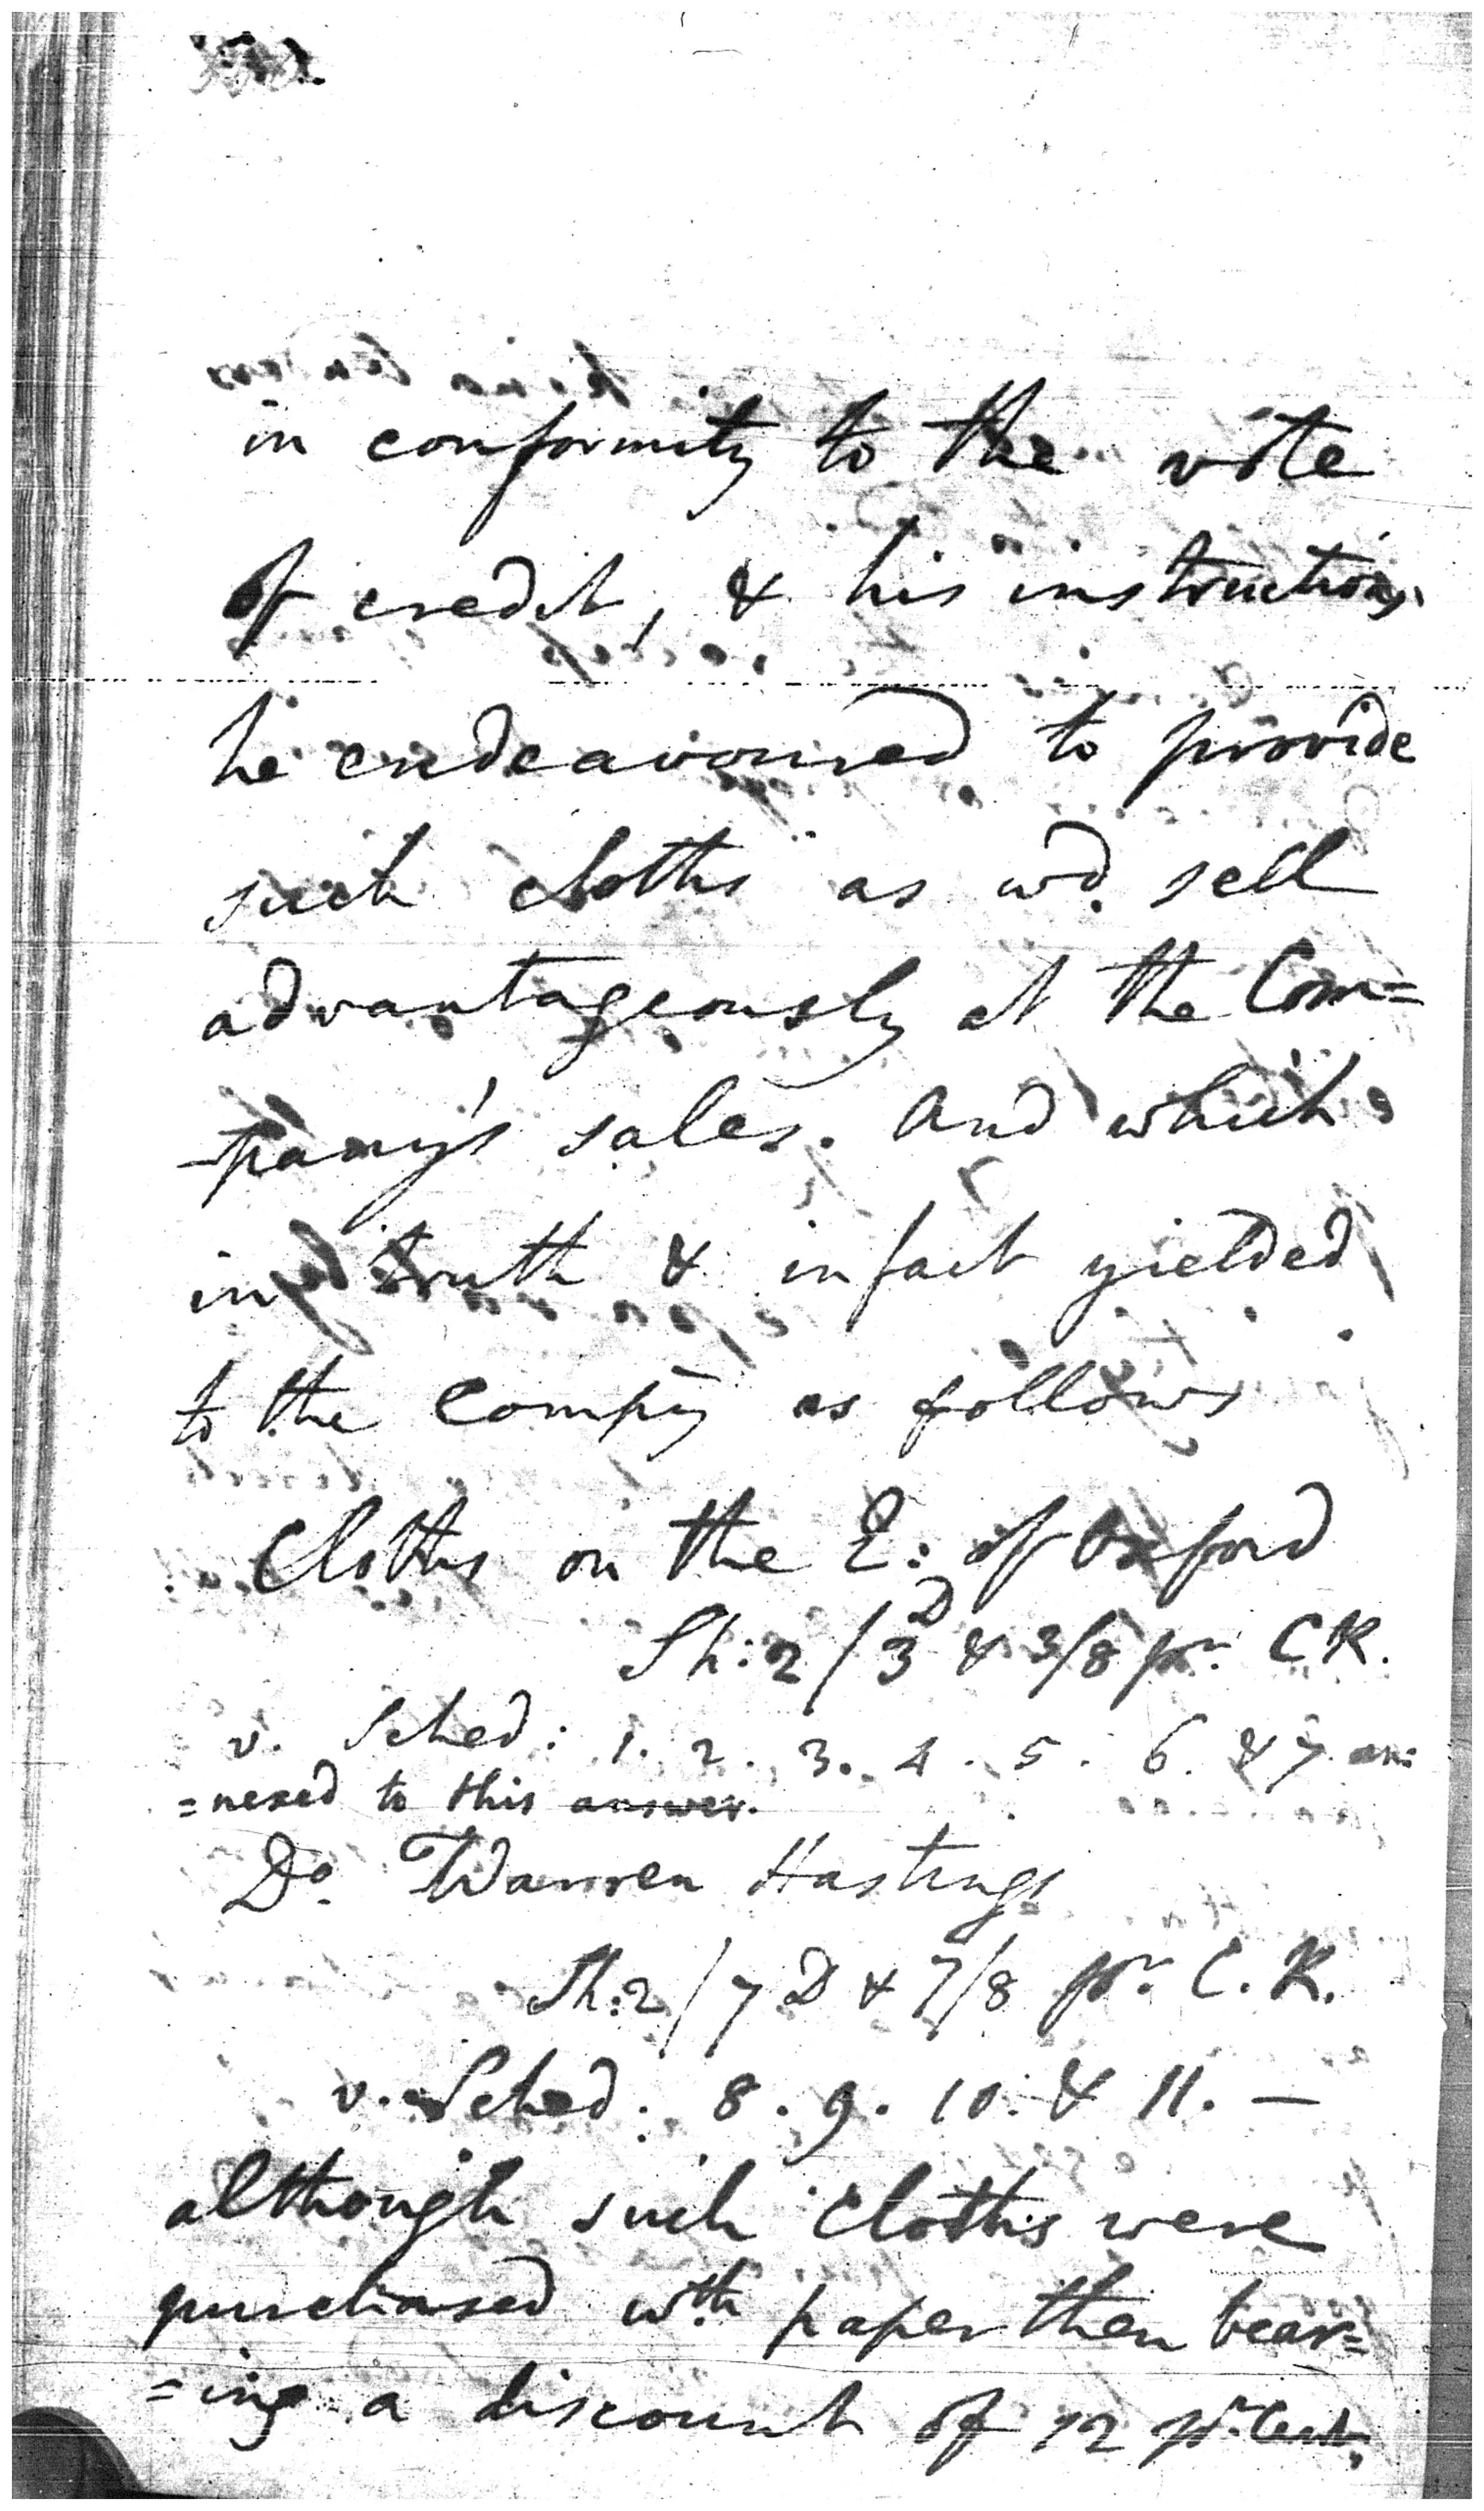 in conformity to the vote
of credit, & his instructions
he endeavoured to provide
such cloths as wd. sell
advantageously at the Com=
-pany's sales. And which
in truth & in fact yielded
to the Compy as follows
Cloths on the E: of Oxford
Sh: 2/3D & 3/8 pr. C.R.
v. Sched: 1. 2. 3. 4. 5. 6. & 7 an=
=nexed to this answer.
Do. Warren Hastings
Sh: 2/7 D & 7/8 pr. C. R.
v. Sched. 8. 9. 10. & 11. —
although such cloths were
purchased wth paper then bear=
=ing a discount of 12 pr. Cent,